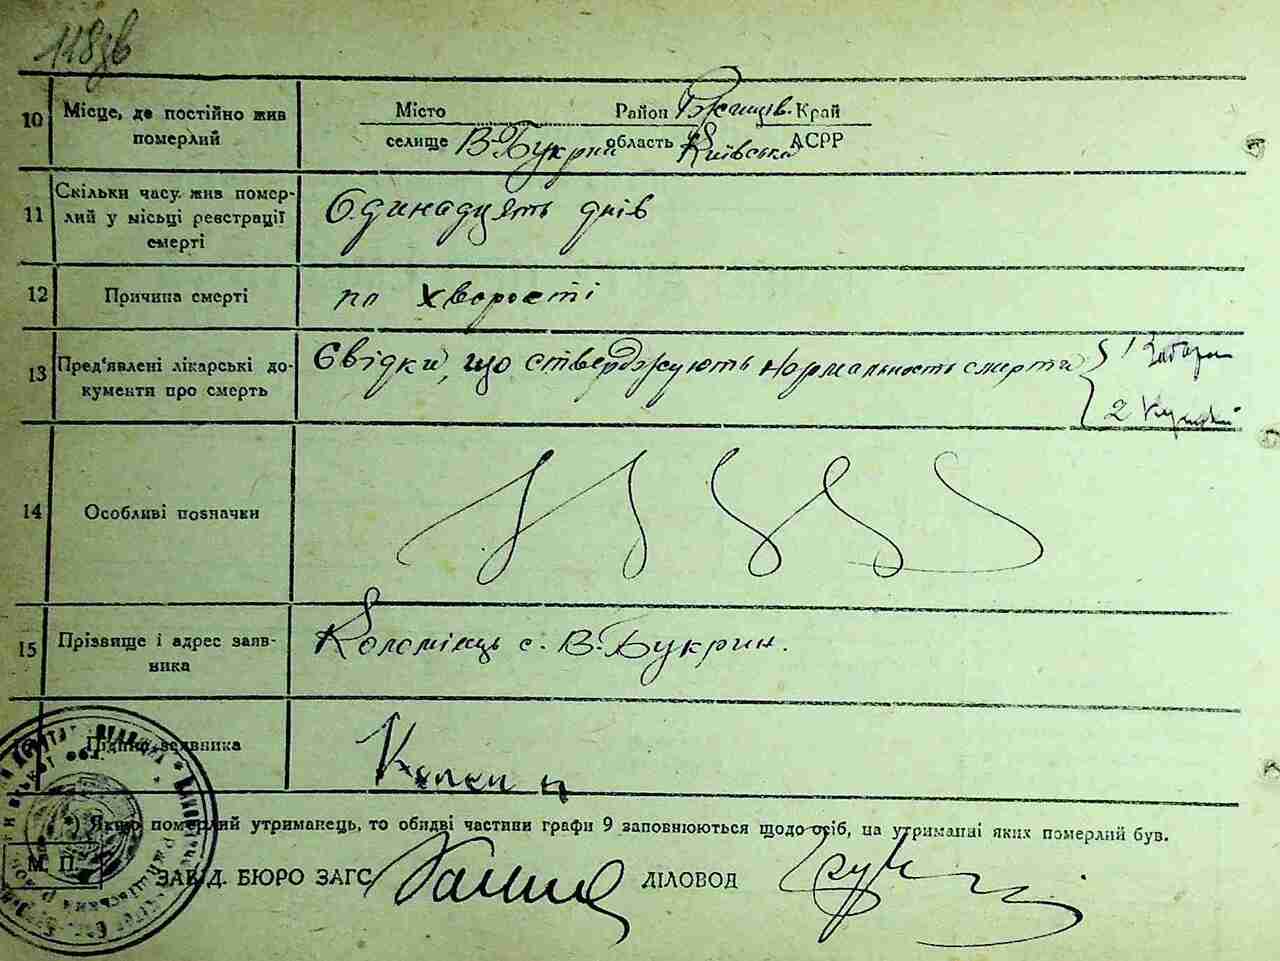 118зв
10 Місце, де постійно жив померлий
Місто Район Ржищів. Край
селище В-Букрин область Київська АСРР
11 Скільки часу жив померлий у місці реєстрації смерті
Одинадцять днів
12 Причина смерті
по хворості
13 Пред'явлені лікарські документи про смерть
Свідки, що стверджують нормальность смерти { 1
2
14 Особливі позначки
15 Прізвище і адрес заявника
Коломієць с. В-Букрин.
Підпис заявника
Якщо померлий утриманець, то обидві частини графи 9 заповнюються щодо осіб, на утриманні яких померлий був.
М. П.
ЗАВІД. БЮРО ЗАГС ДІЛОВОД